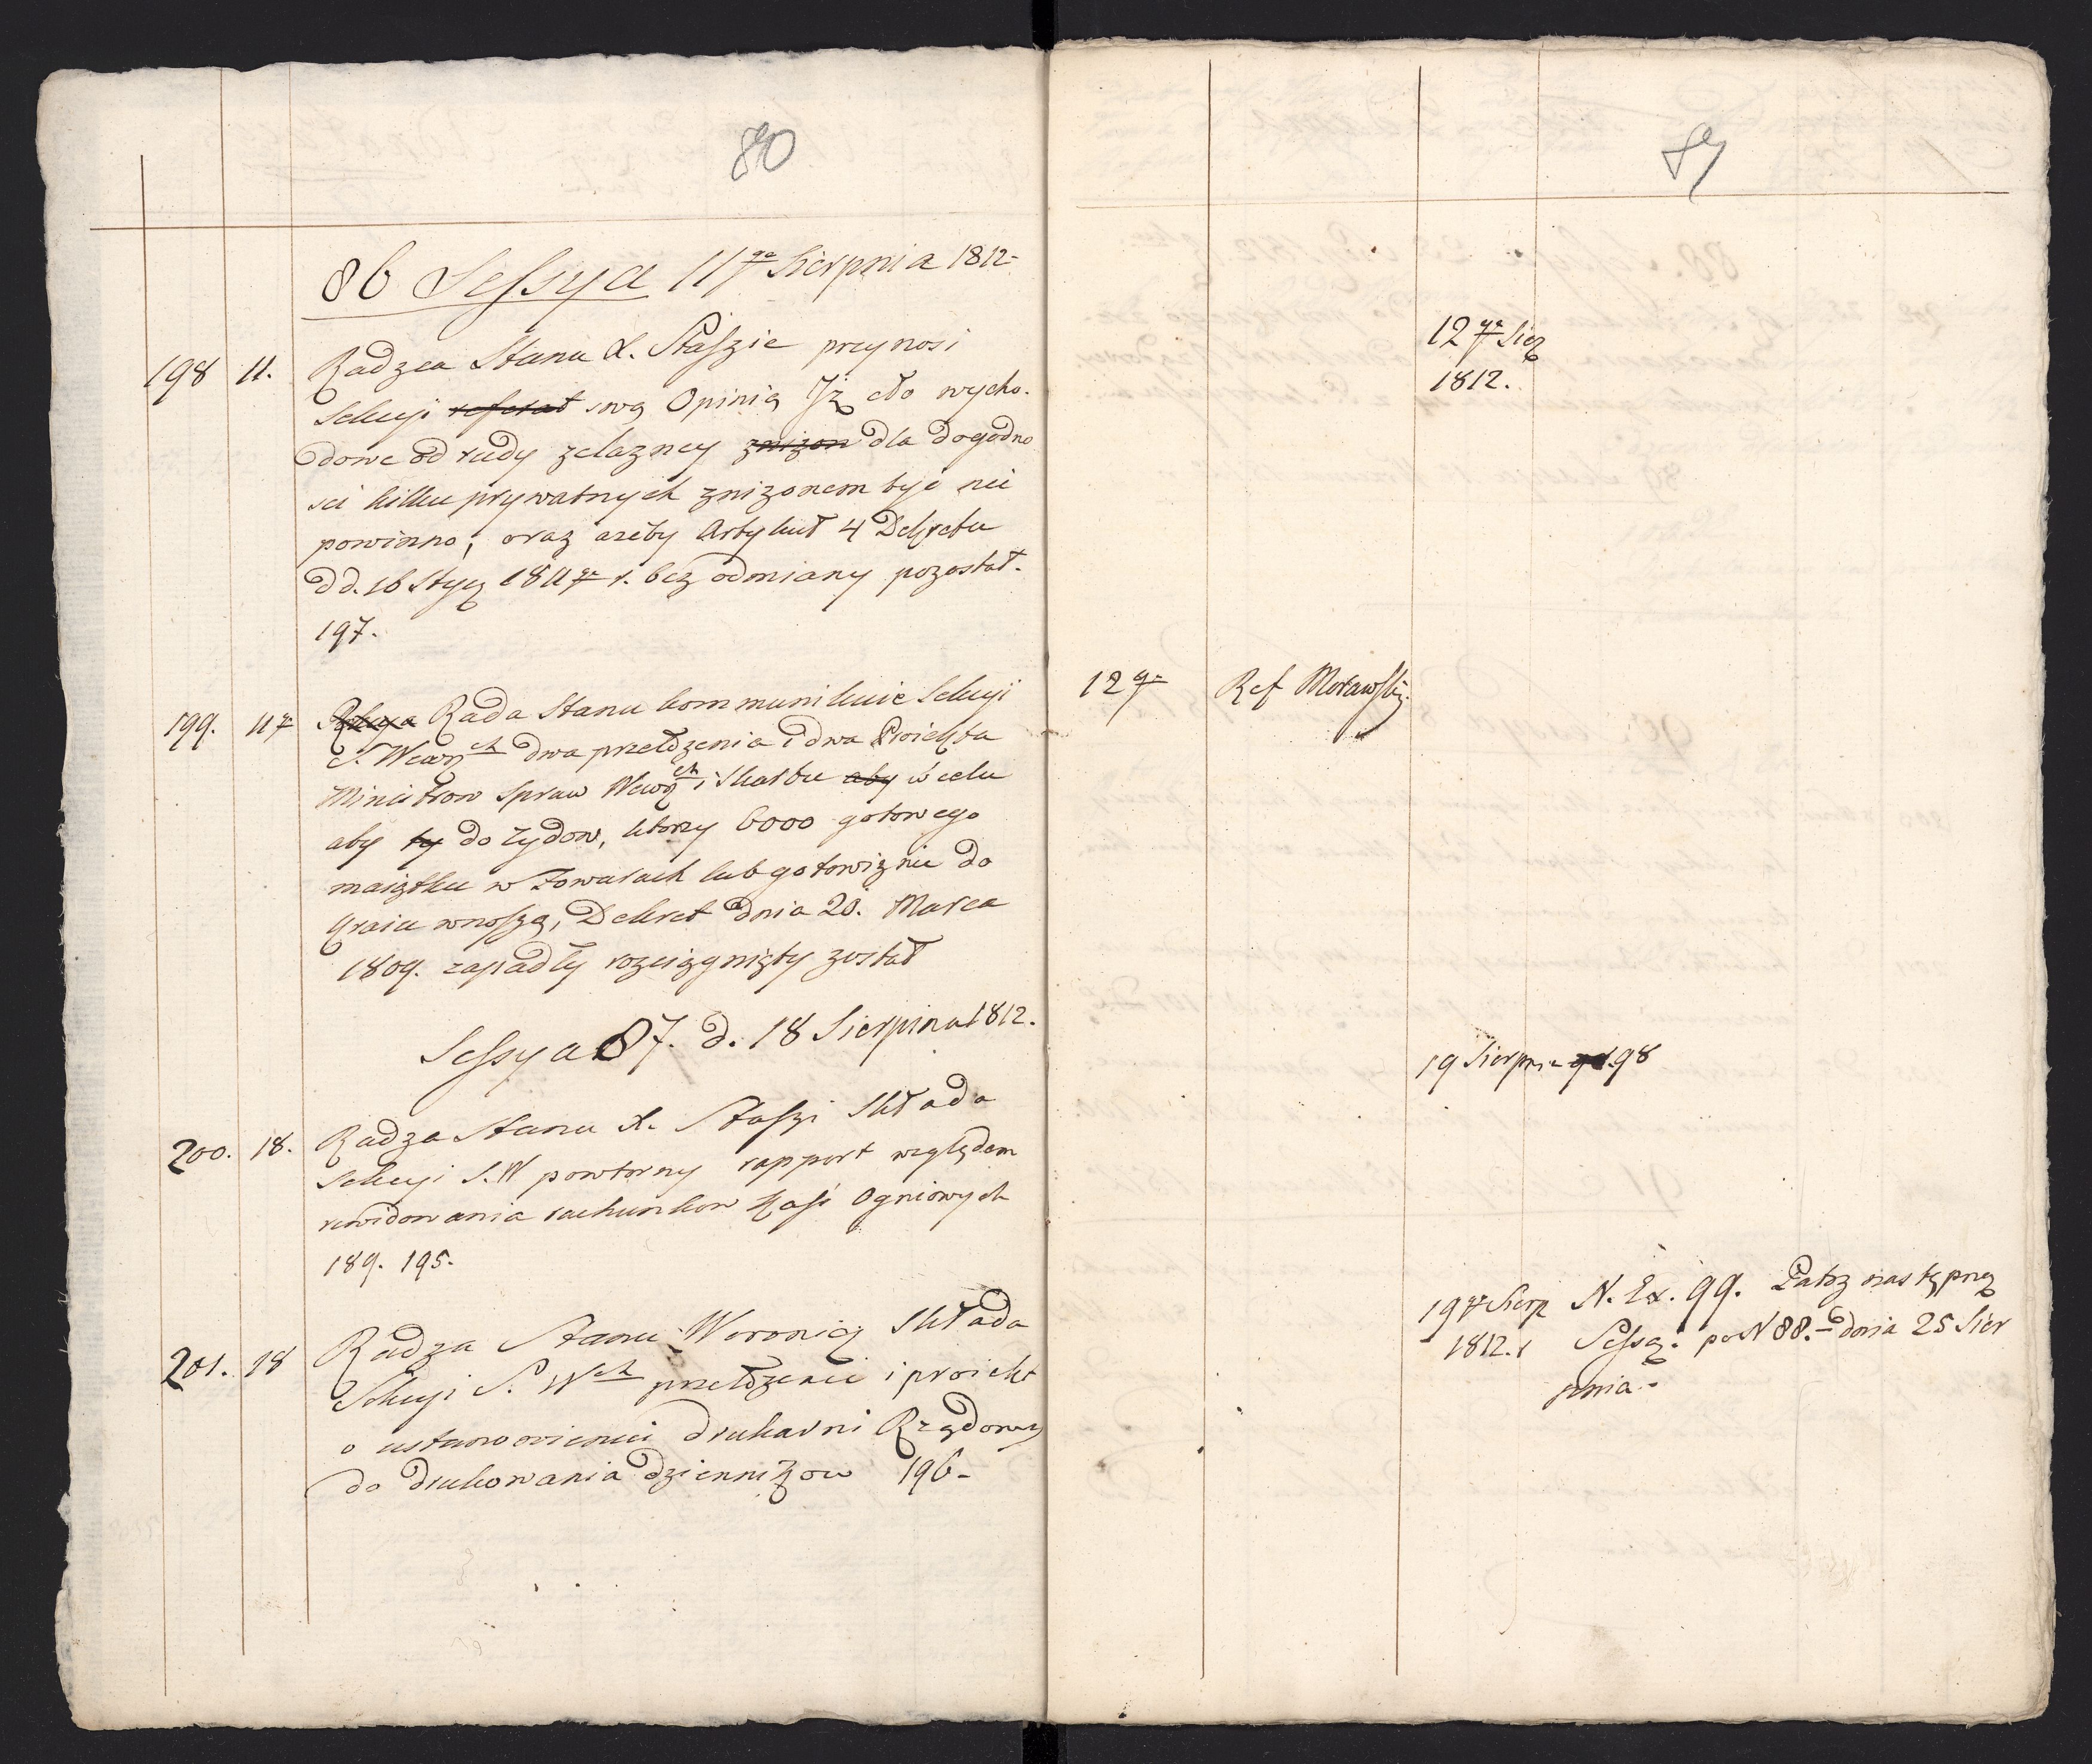 80
86 Sessya 11go Sierpnia 1812
198 11. Radzca Stanu X. Staszic przynosi
Sekcyi referat swą Opinią Iż cło wycho-
dowe od rudy zelazney znizon dla dogodno
sci kilku prywatnych znizonem być nie
powinno, oraz azeby Artykuł 4 Dekretu
dd. 16 Stycz 1811go r. bez odmiany pozostał.
197.
199. 11go Rada Stanu kommunikuie Sekcyi
S. Wewn.ch dwa przełozenia i dwa Proiekta
Ministrow Spraw Wewn.ch i Skarbu aby w celu
aby ty do Zydow, ktorzy 6000 gotowego
maiątku w Towarach lub gotowiznie do
Kraiu wnoszą, Dekret dnia 20. Marca
1809. zapadły rozciągnięty został
Sessya 87. d. 18 Sierpnia 1812.
200. 18. Radza Stanu X. Staszi Składa
Sekcyi S. W powtorny rapport względem
rewidowania rachunkow Kass Ogniowych
189. 195.
201. 18 Radza Stanu Woronicz Składa
Sekcyi S. Wch przełożenie i proiekt
o ustanowieniu drukarni Rządowey
do drukowania dziennikow 196-
89
12go Sierp
1812.
12go Ref Morawski.
19 Sierpnia 98
19go Sierp N. Ex. 99. Patrz następną
1812. r Sessą. po N 88. dnia 25 Sier
pnia.